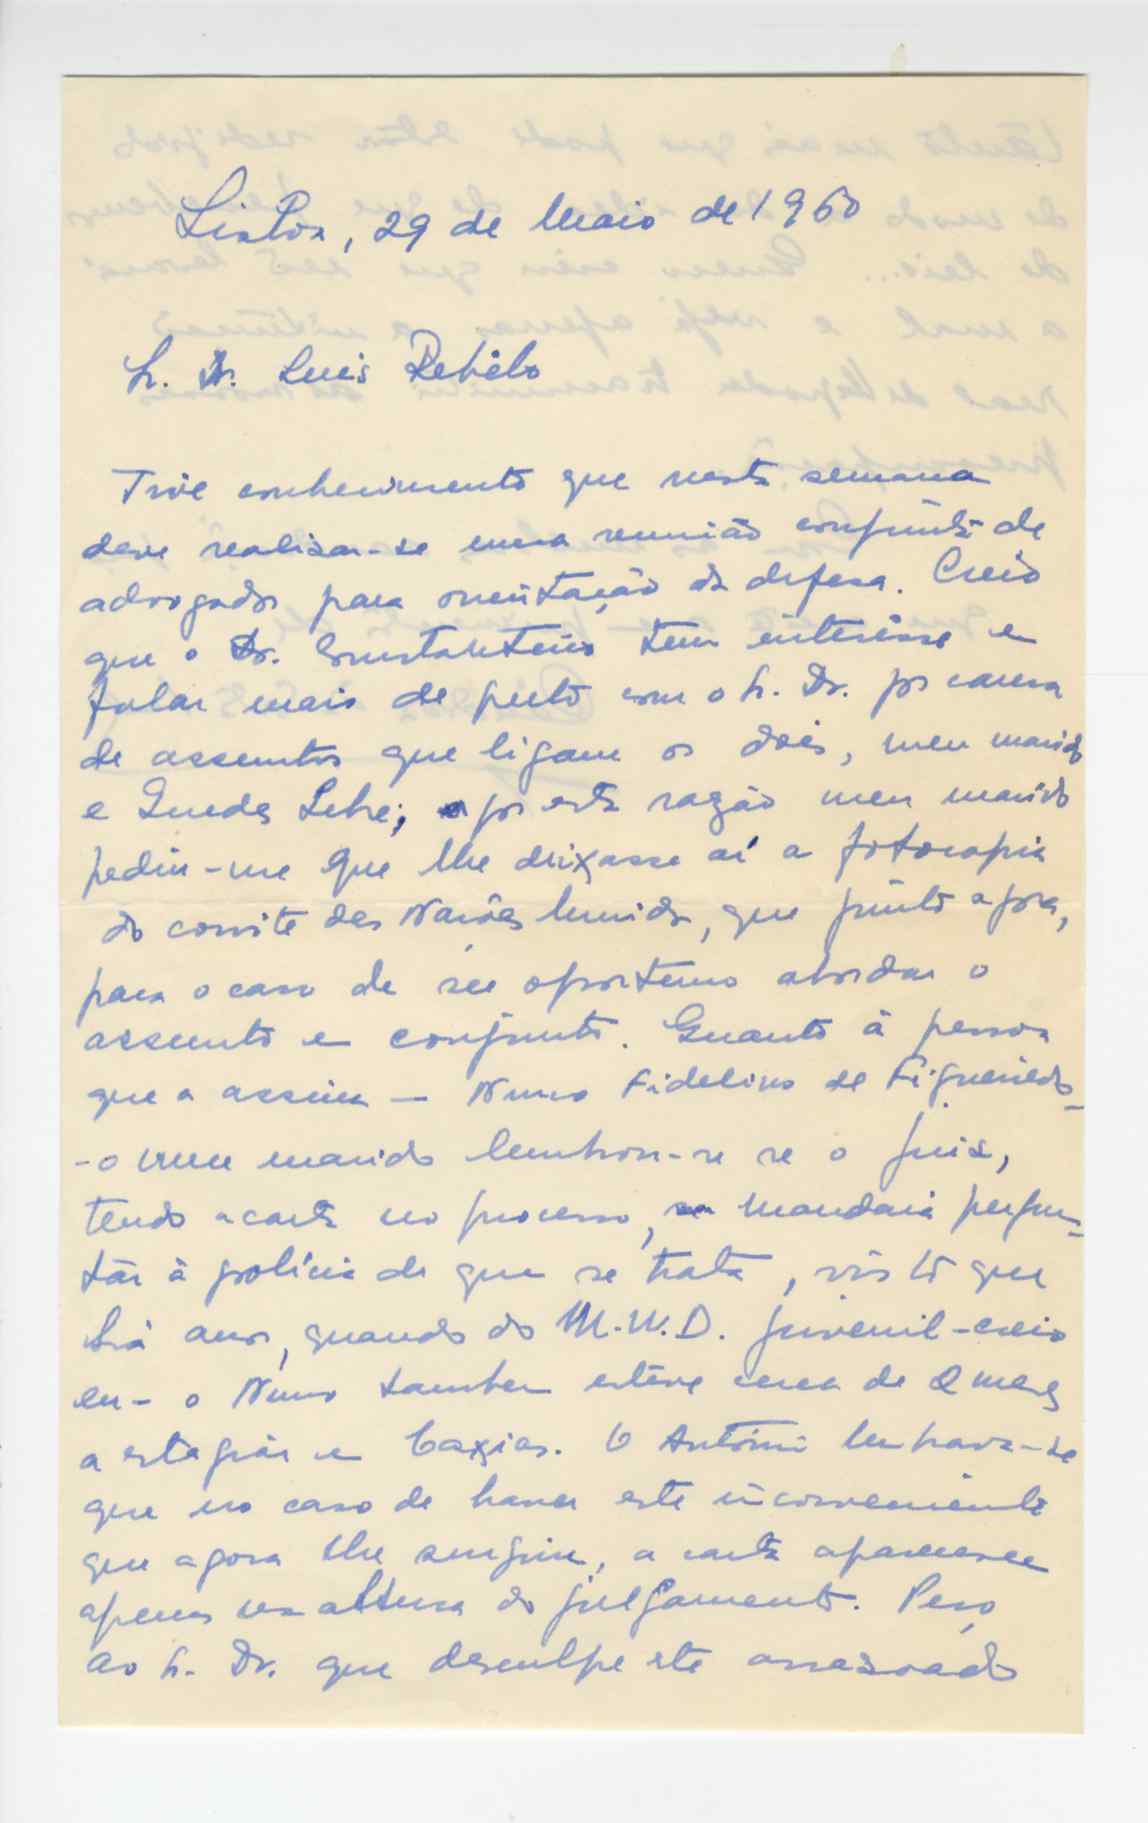 Lisboa, 29 de Maio de 1960
Sr. Dr. Luís Rebêlo
Tive conhecimento que nesta semana
deve realisar-se uma reunião conjunta de
advogados para orientação da defesa. Creio
que o Dr. Constantino tem interêsse em
falar mais de perto com o Sr. Dr. por causa
de assuntos que ligam os dois, meu marido
e Guedes Lebre; por esta razão meu marido
pediu-me que lhe deixasse aí a fotocopia
do convite das Nações Unidas, que junto agora,
para o caso de ser oportuno abordar o
assunto em conjunto. Quanto à pessoa
que a assina — Nuno Fidelino de Figueiredo-
-o meu marido lembrou-se se o juiz,
tendo a carta no processo, mandará pergun-
tar à polícia de que se trata, visto que
há anos, quando do M.U.D. juvenil-creio
eu- o Nuno tambem estêve cerca de 2 meses
a estagiar em Caxias. O António lembrava-se
que no caso de haver este inconveniente
que agora lhe surgiu, a carta aparecesse
apenas na altura do julgamento. Peço
ao Sr. Dr. que desculpe este arrazoado